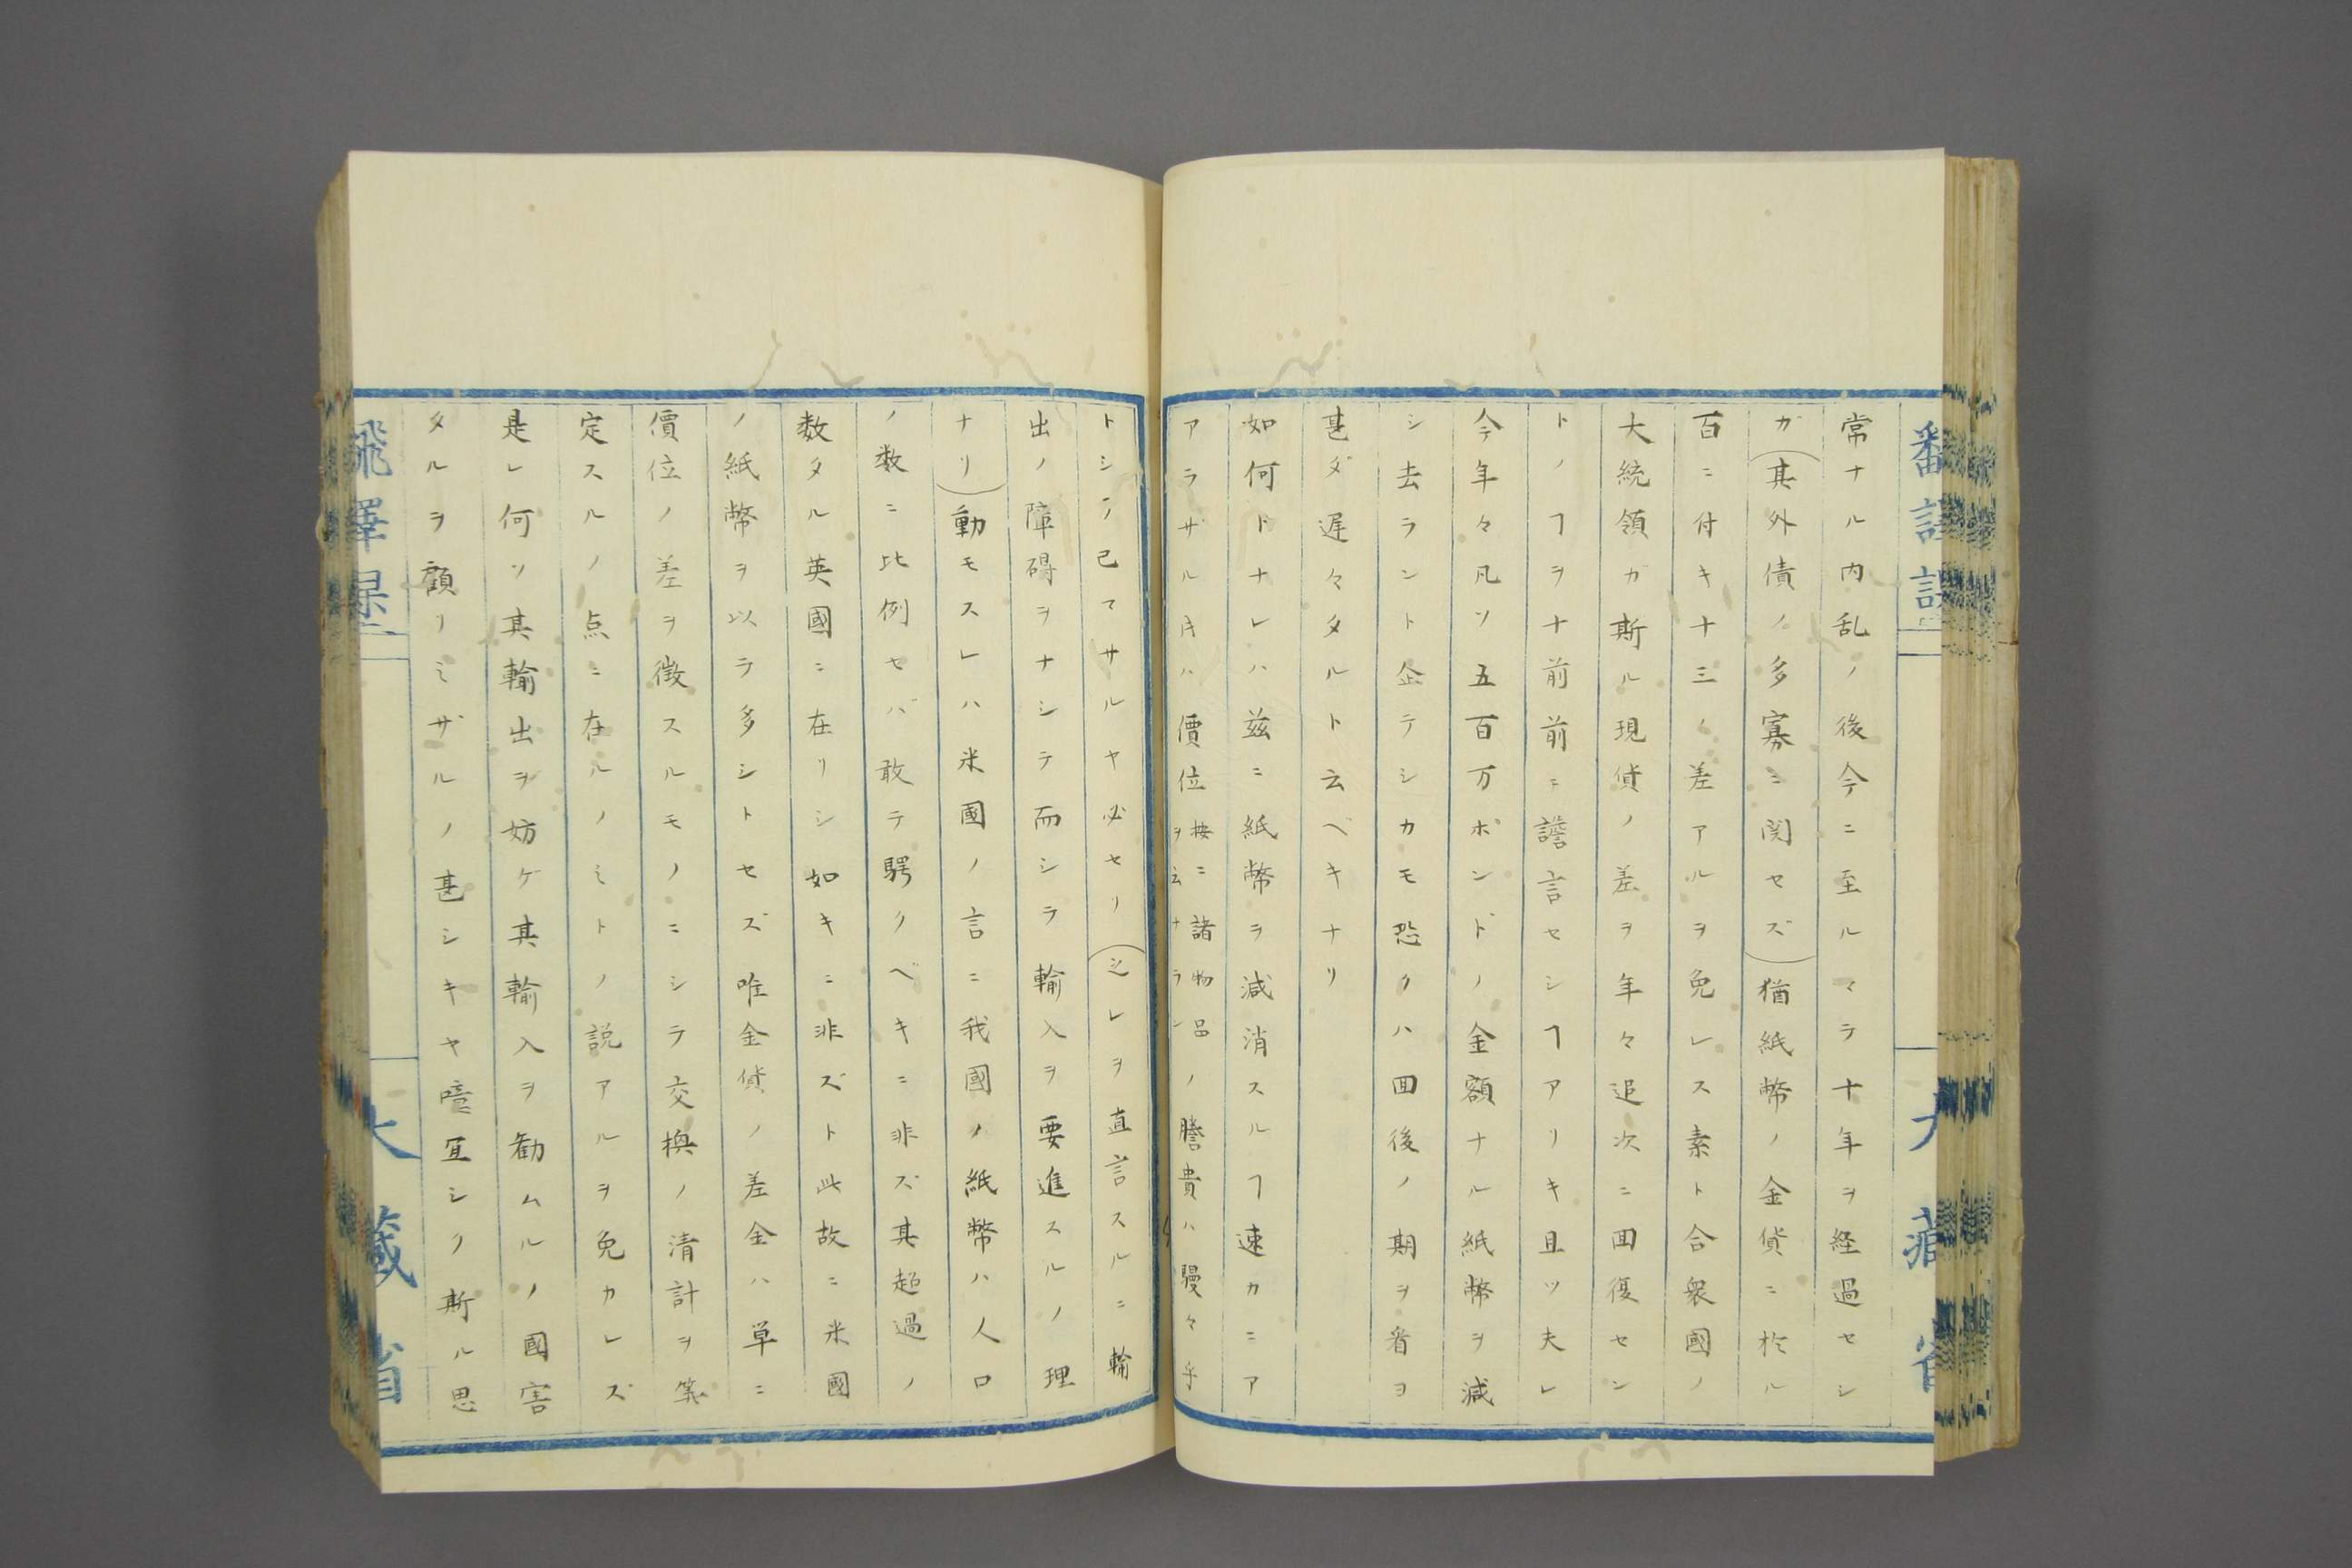 常ナル内乱ノ後今ニ至ルマテ十年ヲ経過セシ
ガ(其外債ノ多寡ニ関セズ)猶紙幣ノ金貨ニ於ル
百ニ付キ十三ノ差アルヲ免レス素ト合衆國ノ
大統領ガ斯ル現貨ノ差ヲ年々追次ニ囬復セン
トノヿヲ十前前ニ譫言セシヿアリキ且ツ夫レ
今年々凡ソ五百万ポンドノ金額ナル紙幣ヲ減
シ去ラント企テシカモ恐クハ囬後ノ期ヲ看ヨ
甚ダ遅々タルト云ベキナリ
如何トナレハ茲ニ紙幣ヲ減消スルヿ速カニア
アラザル𪜈ハ價位按ニ諸物品ヲ云ナランノ騰貴ハ騣々乎
トシテ已マサルヤ必セリ(之レヲ直言スルニ輸
出ノ障碍ヲナシテ而シテ輸入ヲ要進スルノ理
ナリ)動モスレハ米國ノ言ニ我國ノ紙幣ハ人口
ノ数ニ比例セバ敢テ騎クベキニ非ズ其超過ノ
数タル英國ニ在リシ如キニ非ズト此故ニ米國
ノ紙幣ヲ以テ多シトセズ唯金貨ノ差金ハ草ニ
價位ノ差ヲ徴スルモノニシテ交換ノ清計ヲ筭
定スルノ点ニ在ルノミトノ説アルヲ免カレズ
是レ何ソ其輸出ヲ妨ケ其輸入ヲ勧ムルノ國害
タルヲ顧リミザルノ甚シキヤ噫宜シク斯ル思
大藏省